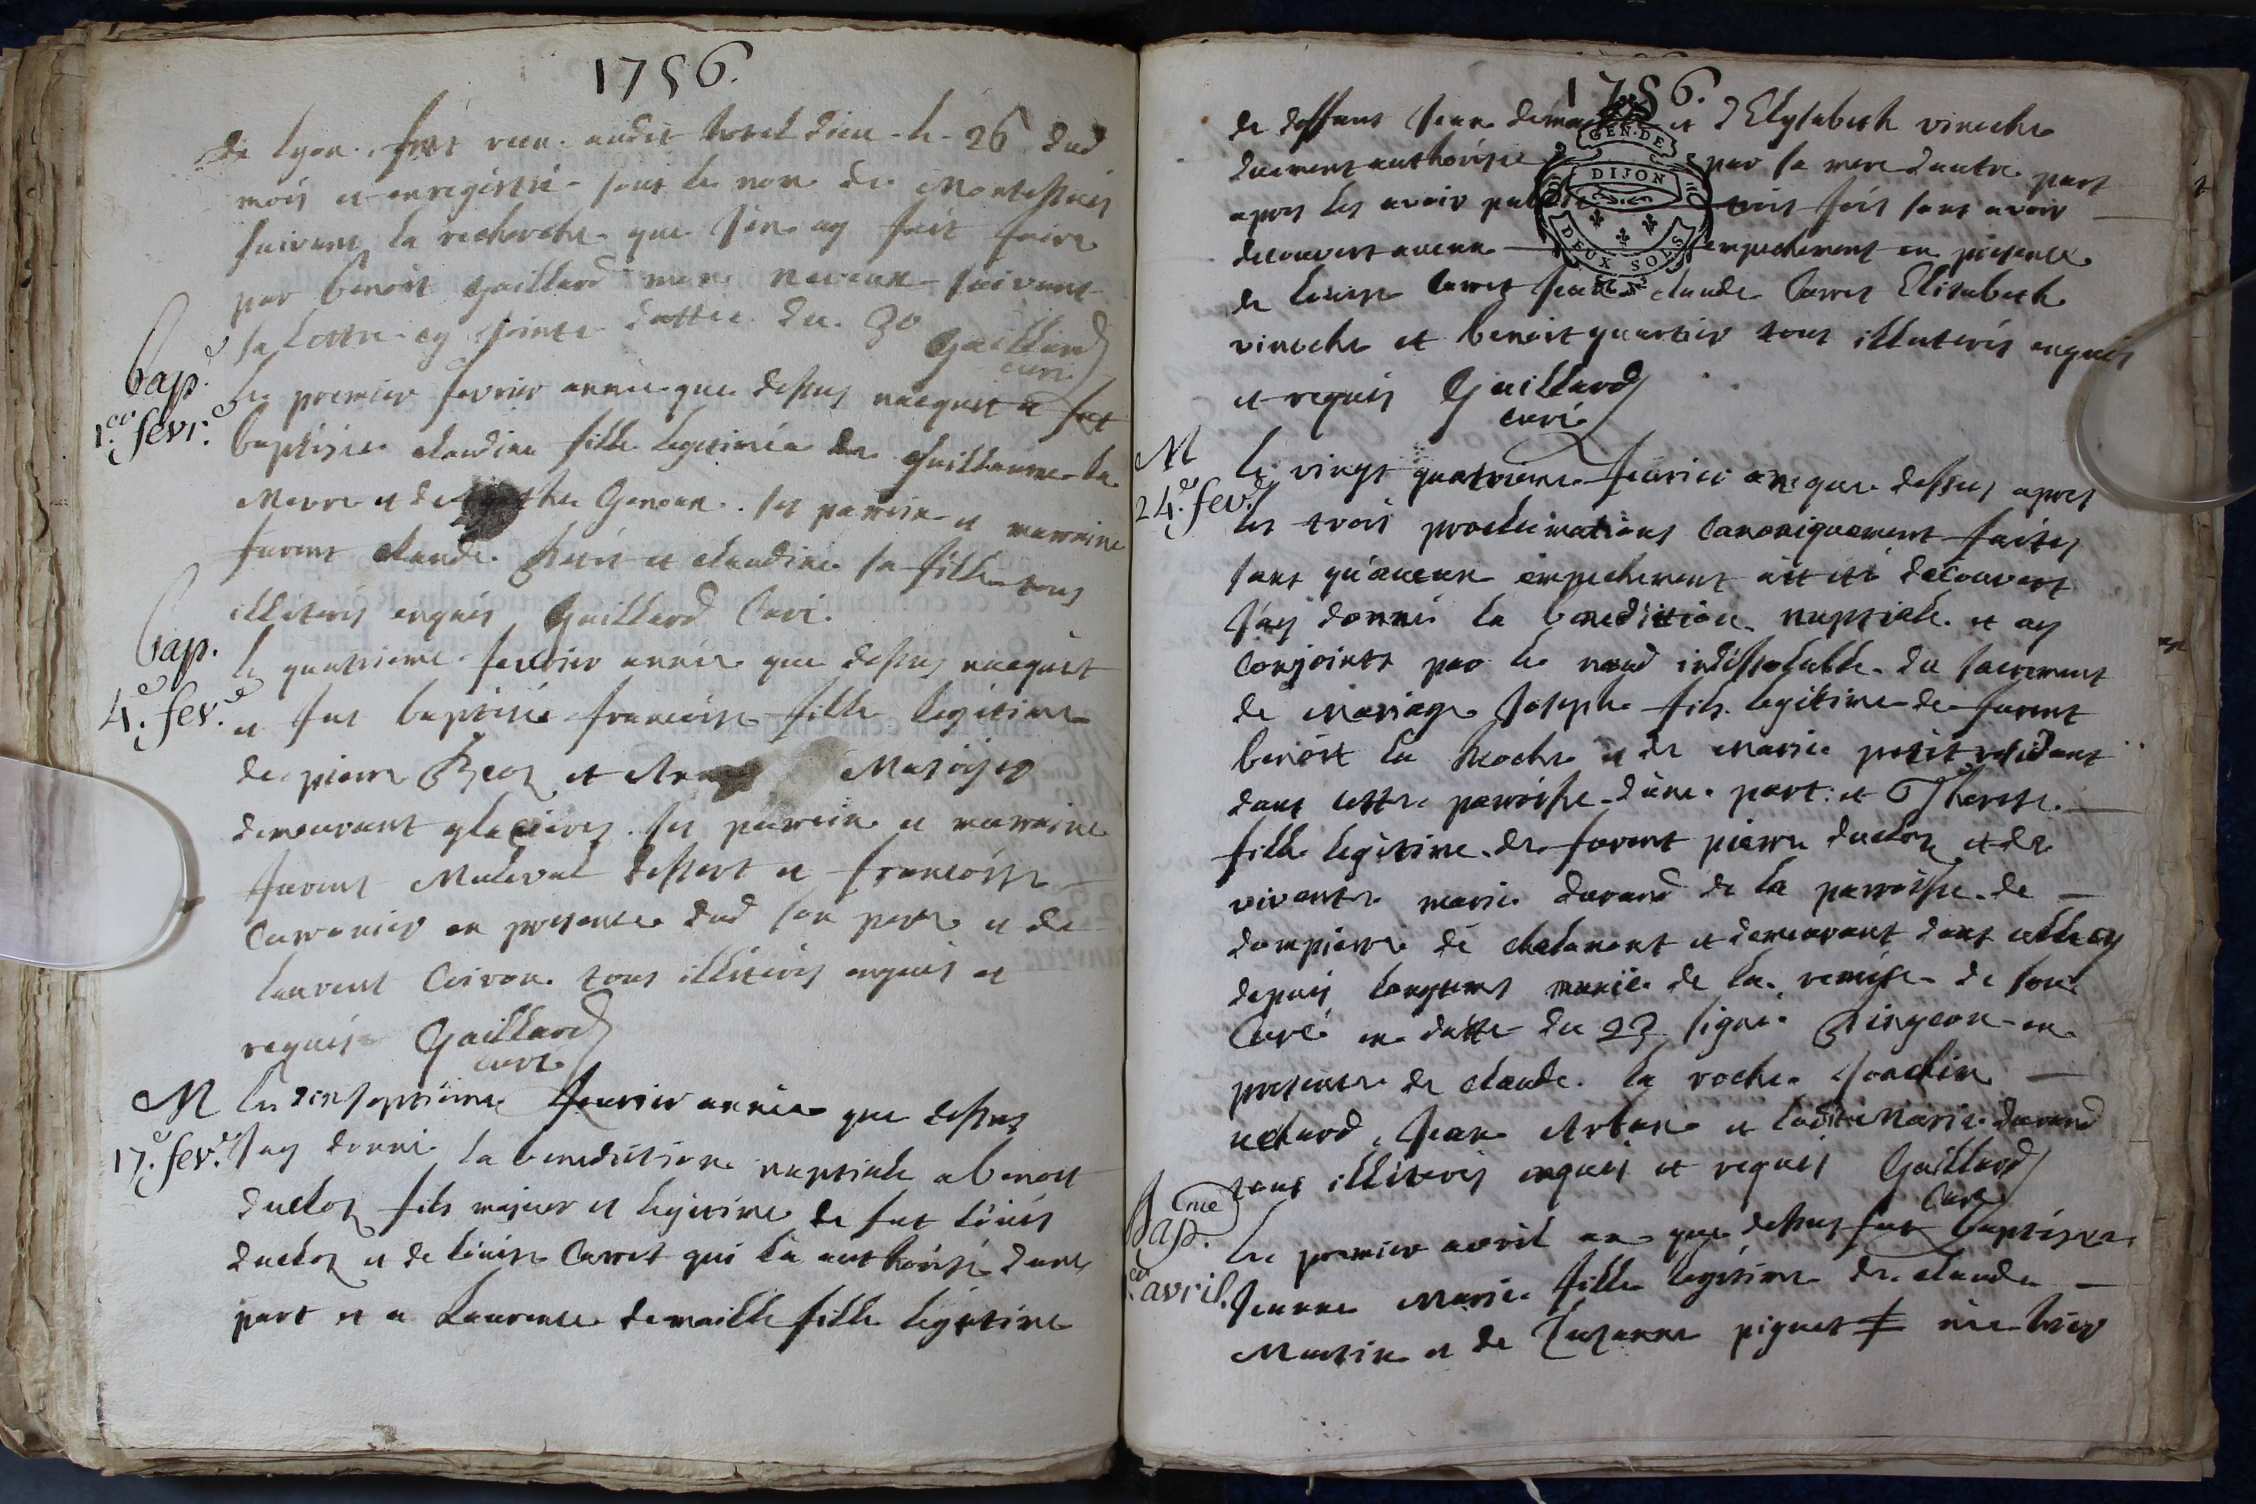 1756.
de lyon. fut recu audit hotel dieu le 26 dud
mois et enregistré sous le nom de
suivant la recherche que j'en ay fait faire
par benoit gaillard mon neveux suivant
sa lettre cy jointe dattée du 30 Gaillard
curé
bap.
1.er fevr.
Le premier fevrier année que dessus nacquit et fut
baptisée claudine fille legitimée de guillaume la
Mevre et de Genoux. ses parrain et marraine
furent claude et claudine sa fille tous
illiterés enquis Gaillard Curé.
bap.
4.e fev.
le quatrieme fevrier année que dessus nacquit
et fut baptisée francoise fille legitime
de pierre et
demeurant glacieres. ses parrain et marraine
furent dessert et francoise
en presence dud son pere et de
laurent tous illiterés enquis et
requis Gaillard
curé
M
17.e fev.
Le dixseptieme fevrier année que dessus
J'ay donné la benediction nuptiale a benoit
duclos fils majeur et legitime de fut loüis
duclos et de loüise Carret qui la authorisé dune
part et a Laurence demaille fille legitime
1756.
GEN. DE
DIJON
DEUX SOLS
de deffunt Jean et d'Elysabeth vinoche
duement authorisée par sa mere dautre part
apres les avoir publié trois fois sans avoir
decouvert aucun empechement en presence
de loüise Carret Jean claude Carret Elisabeth
vinoche et benoit quartier tous illiterés enquis
et requis Gaillard
curé
M
24.e fev.
Le vingt quatrieme fevrier an que dessus apres
les trois proclamations canoniquement faites
sans qu'aucun empechement ait eté decouvert
J'ay donné la benediction nuptiale et ay
conjoints par le noeud indissolubble du sacrement
de mariage Joseph fils legitime de furent
benoit la Roche et de Marie petit residant
dans cette parroisse dune part. et Therese
fille legitime de furent pierre duclos et de
vivante marie durand de la parroisse de
dompierre de chalamont et demeurant dans celle cy
depuis longtems munie de la remise de son
Curé en datte du 23 signé en
presence de claude la roche Joachim
Jean et ladite Marie durand
tous illiterés enquis et requis Gaillard
Curé
nce
Bap.
1.er avril.
Le premier avril an que dessus fut baptisée
Jeanne Marie fille legitime de claude
Martin et de Suzanne piquet ‡ née hier